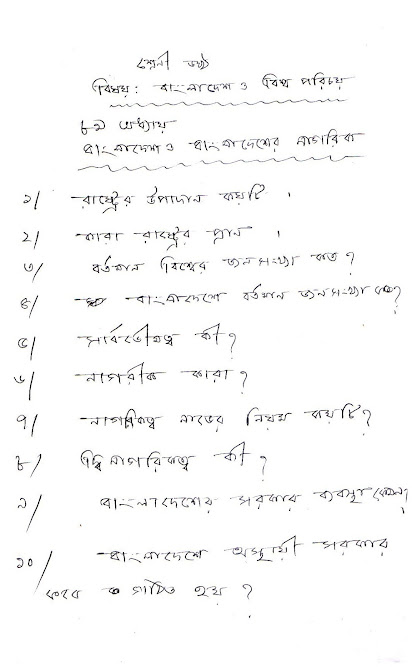 শ্রেনী ৬ষ্ঠ
বিষয়: বাংলাদেশ ও বিশ্ব পরিচয়
৮ম অধ্যায়
বাংলাদেশ ও বাংলাদেশের নাগরিক
১/ রাষ্ট্রের উপাদান কয়টি ।
২/ কারা রাষ্ট্রের প্রান ।
৩/ বর্তমান বিশ্বের জনসংখ্যা কত ?
৪/ বাংলাদেশে বর্তমান জনসংখ্যা কত?
৫/ সার্বভৌমত্ব কী ?
৬/ নাগরীক কারা ?
৭/ নাগরিকত্ব লাভের নিয়ম কয়টি?
৮/ দ্বি নাগরিকত্ব কী ?
৯/ বাংলাদেশের সরকার ব্যবস্থা কেমন?
১০/ বাংলাদেশে অস্থায়ী সরকার
কবে গঠিত হয় ?